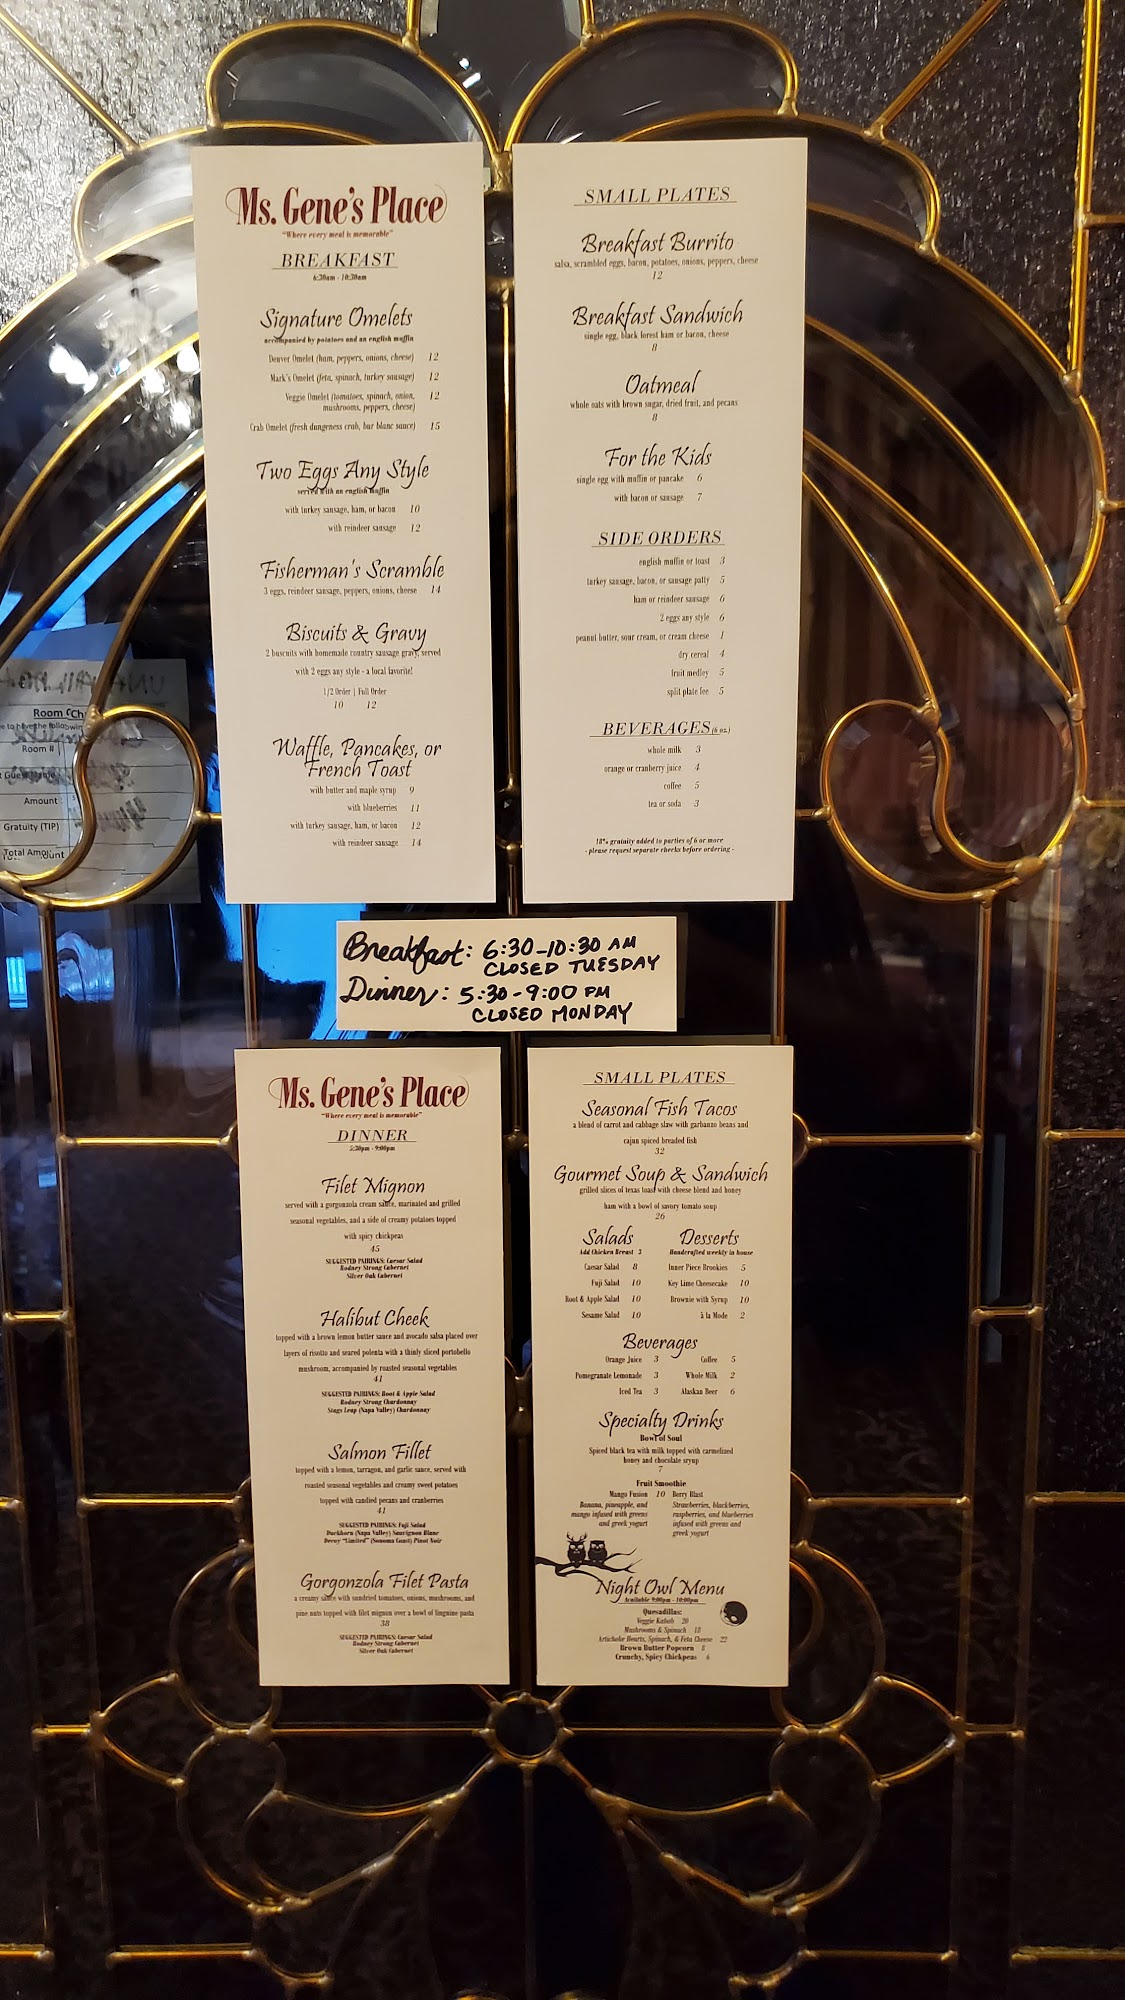 Ms. Gene's Place
"Where every meal is memorable"
BREAKFAST
6:30am - 10:30am
Signature Omelets
accompanied by potatoes and an english muffin
Denver Omelet (ham, peppers, onions, cheese) 12
Mark's Omelet (feta, spinach, turkey sausage) 12
Veggie Omelet (tomatoes, spinach, onion, 12
mushrooms, peppers, cheese)
Crab Omelet (fresh dungeness crab, bur blanc sauce) 15
Two Eggs Any Style
served with an english muffin
with turkey sausage, ham, or bacon 10
with reindeer sausage 12
Fisherman's Scramble
3 eggs, reindeer sausage, peppers, onions, cheese 14
Biscuits & Gravy
2 buscuits with homemade country sausage gravy, served
with 2 eggs any style - a local favorite!
1/2 Order | Full Order
10 12
Waffle, Pancakes, or
French Toast
with butter and maple syrup 9
with blueberries 11
with turkey sausage, ham, or bacon 12
with reindeer sausage 14
SMALL PLATES
Breakfast Burrito
salsa, scrambled eggs, bacon, potatoes, onions, peppers, cheese
12
Breakfast Sandwich
single egg, black forest ham or bacon, cheese
8
Oatmeal
whole oats with brown sugar, dried fruit, and pecans
8
For the Kids
single egg with muffin or pancake 6
with bacon or sausage 7
SIDE ORDERS
english muffin or toast 3
turkey sausage, bacon, or sausage patty 5
ham or reindeer sausage 6
2 eggs any style 6
peanut butter, sour cream, or cream cheese 1
dry cereal 4
fruit medley 5
split plate fee 5
BEVERAGES (6 oz.)
whole milk 3
orange or cranberry juice 4
coffee 5
tea or soda 3
18% gratuity added to parties of 6 or more
- please request separate checks before ordering -
Room Ch
Room #
Amount
Gratuity (TIP)
Total Amount
Breakfast: 6:30-10:30 AM
CLOSED TUESDAY
Dinner: 5:30-9:00 PM
CLOSED MONDAY
Ms. Gene's Place
"Where every meal is memorable"
DINNER
5:30pm - 9:00pm
Filet Mignon
served with a gorgonzola cream sauce, marinated and grilled
seasonal vegetables, and a side of creamy potatoes topped
with spicy chickpeas
45
SUGGESTED PAIRINGS: Caesar Salad
Rodney Strong Cabernet
Silver Oak Cabernet
Halibut Cheek
topped with a brown lemon butter sauce and avocado salsa placed over
layers of risotto and seared polenta with a thinly sliced portobello
mushroom, accompanied by roasted seasonal vegetables
41
SUGGESTED PAIRINGS: Root & Apple Salad
Rodney Strong Chardonnay
Stags Leap (Napa Valley) Chardonnay
Salmon Fillet
topped with a lemon, tarragon, and garlic sauce, served with
roasted seasonal vegetables and creamy sweet potatoes
topped with candied pecans and cranberries
41
SUGGESTED PAIRINGS: Fuji Salad
Duckhorn (Napa Valley) Sauvignon Blanc
Decoy "Limited" (Sonoma Coast) Pinot Noir
Gorgonzola Filet Pasta
a creamy sauce with sundried tomatoes, onions, mushrooms, and
pine nuts topped with filet mignon over a bowl of linguine pasta
38
SUGGESTED PAIRINGS: Caesar Salad
Rodney Strong Cabernet
Silver Oak Cabernet
SMALL PLATES
Seasonal Fish Tacos
a blend of carrot and cabbage slaw with garbanzo beans and
cajun spiced breaded fish
32
Gourmet Soup & Sandwich
grilled slices of texas toast with cheese blend and honey
ham with a bowl of savory tomato soup
26
Salads Desserts
Add Chicken Breast 3 Handcrafted weekly in house
Caesar Salad 8 Inner Piece Brookies 5
Fuji Salad 10 Key Lime Cheesecake 10
Root & Apple Salad 10 Brownie with Syrup 10
Sesame Salad 10 à la Mode 2
Beverages
Orange Juice 3 Coffee 5
Pomegranate Lemonade 3 Whole Milk 2
Iced Tea 3 Alaskan Beer 6
Specialty Drinks
Bowl of Soul
Spiced black tea with milk topped with carmelized
honey and chocolate sryup
7
Fruit Smoothie
Mango Fusion 10 Berry Blast
Banana, pineapple, and Strawberries, blackberries,
mango infused with greens raspberries, and blueberries
and greek yogurt infused with greens and
greek yogurt
Night Owl Menu
Available 9:00pm - 10:00pm
Quesadillas:
Veggie Kabob 20
Mushrooms & Spinach 18
Artichoke Hearts, Spinach, & Feta Cheese 22
Brown Butter Popcorn 8
Crunchy, Spicy Chickpeas 6